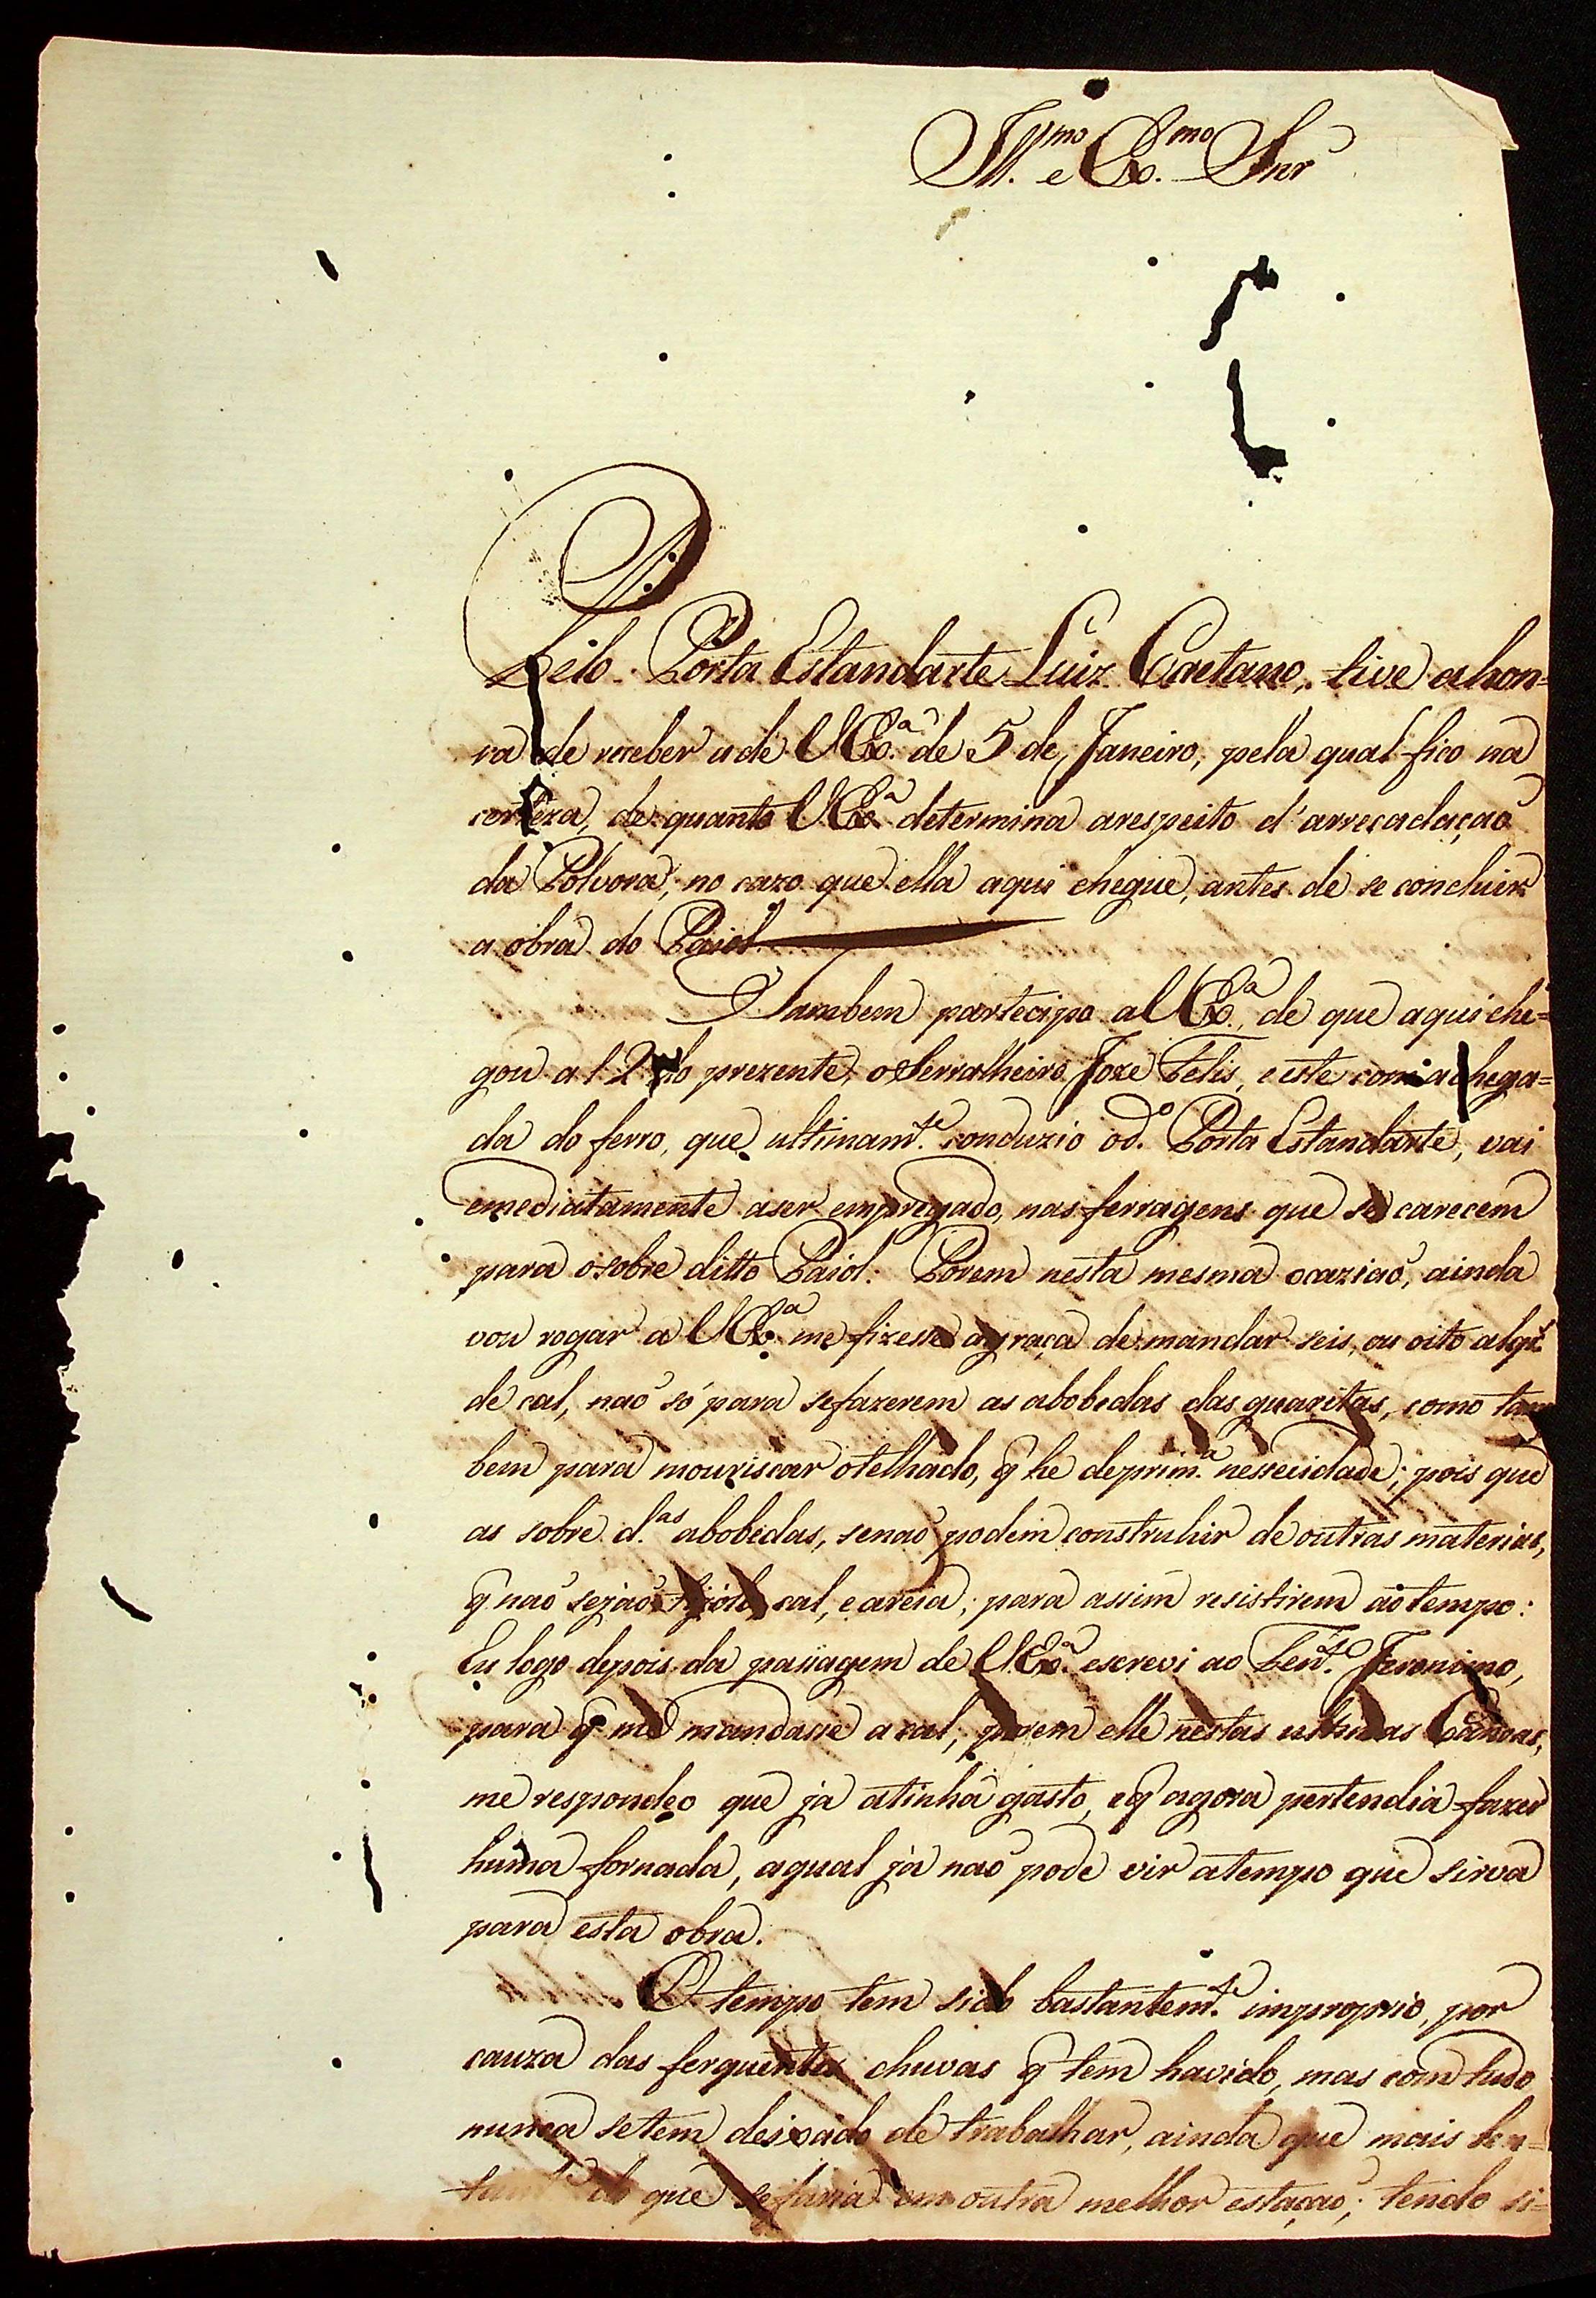 Ill.mo e Ex.mo Snr
Pelo Porta Estandarte Luiz Caetano, tive ahon=
ra de receber a de V Ex.a de 5 de Janeiro, pela qual fico na
certeza, de quanto V Ex.a determina arespeito d'arrecadaçaõ
da Polvora, no cazo que ella aqui chegue, antes de se concluir
a obra do Paiol.
Tambem partecipo a V Ex.a, de que aqui che=
gou a 12 do prezente, o Serralheiro Joze Felis, e este com a chega=
da do ferro, que ultimam.te conduzio o d.o Porta Estandarte, vai
emediatamente aser empregado, nas ferragens que se carecem
para osobre ditto Paiol: Porem nesta mesma ocaziaõ, ainda
vou rogar a V Ex.a me fizesse agraça de mandar seis, ou oito alqr.
de cal, naõ só para sefazerem as abobedas das guaritas, como tam
bem para mouriscar otelhado, q̃ he deprim.a nessecidade; pois que
as sobre d.as abobedas, senaõ podem construhir de outras materias,
q̃ naõ sejaõ tijólo, cal, e areia; para assim resistirem ao tempo:
Eu logo depois da passagem de V. Ex.a escrevi ao Ten.te Jeronimo,
para q̃ me mandasse a cal, porem elle nestas ultimas Canoas,
me respondeo que já atinha gasto, e q̃ agora pertendia fazer
huma fornada, aqual já naõ pode vir atempo que sirva
para esta obra.
O tempo tem sido bastantem.te improprio, por
cauza das ferquentes chuvas q̃ tem havido, mas com tudo
nunca setem deixado de trabalhar, ainda que mais len=
tam.te do que sefaria em outra melhor estaçaõ; tendo si=